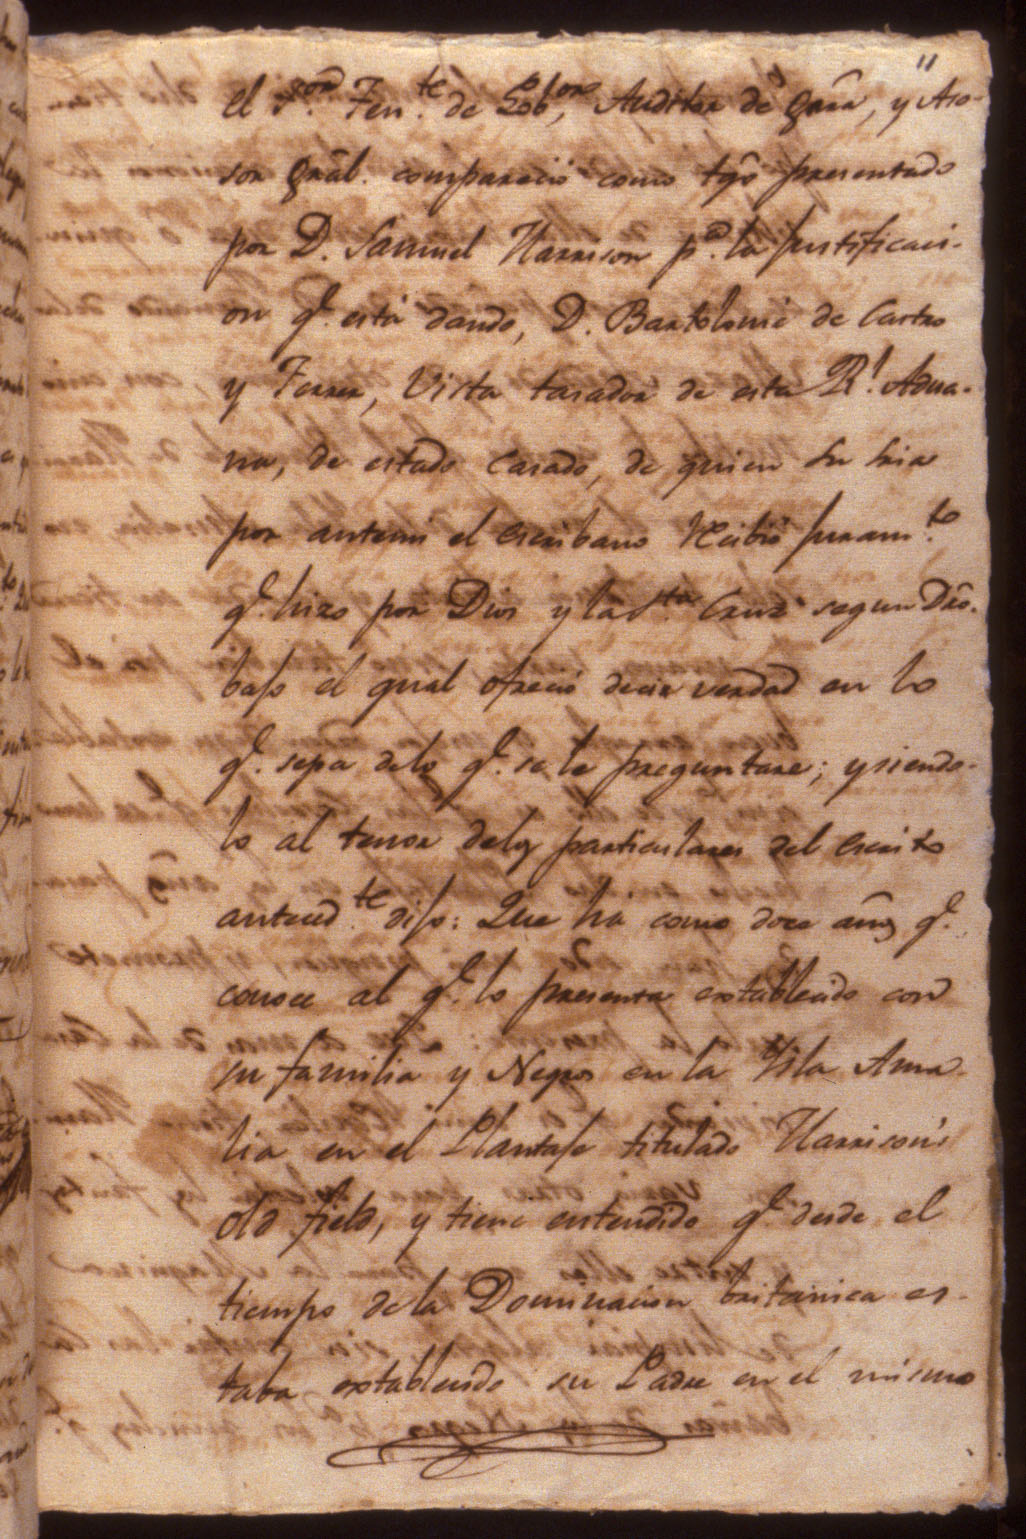 11
el S.or Ten.te de Gob.or, Auditor de Grâ, y Ase-
sor grâl. compareció como tgô presentado
por D. Samuel Harrison p.a la justificaci-
on q.e está dando, D. Bartolomé de Castro
y Ferrer, Vista tasador de esta R.l Adua-
na, de estado casado, de quien Su Sria
por antemi el escribano recibió juram.to
q.e hizo por Dios y la S.ta Cruz segun Dro.
bajo el qual ofreció decir verdad en lo
q.e sepa delo q.e se le preguntare; y siendo-
lo al tenor delos particulares del escrito
anteced.te dijo: Que há como doce años q.e
conoce al q.e lo presenta establecido con
su familia y Negros en la Ysla Ama
lia en el Plantaje titulado Harrison's
old field, y tiene entendido q.e desde el
tiempo dela Dominacion britanica es-
taba establecido su Padre en el mismo